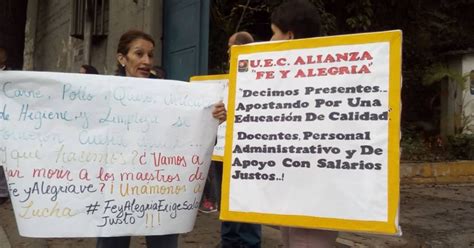 Carne, Pollo, Queso,
de Higiene y Limpieza se
¿Que hacemos? ¿Vamos a
morir a los maestros de
Fe y Alegría ve? ¡Unámonos a
Lucha
#Fe y Alegría Exige Salario
Justo!!!
U.E.C. ALIANZA
"FE Y ALEGRIA"
Decimos Presentes...
Apostando Por Una
Educación De Calidad.
Docentes, Personal
Administrativo y De
Apoyo Con Salarios
Justos..!